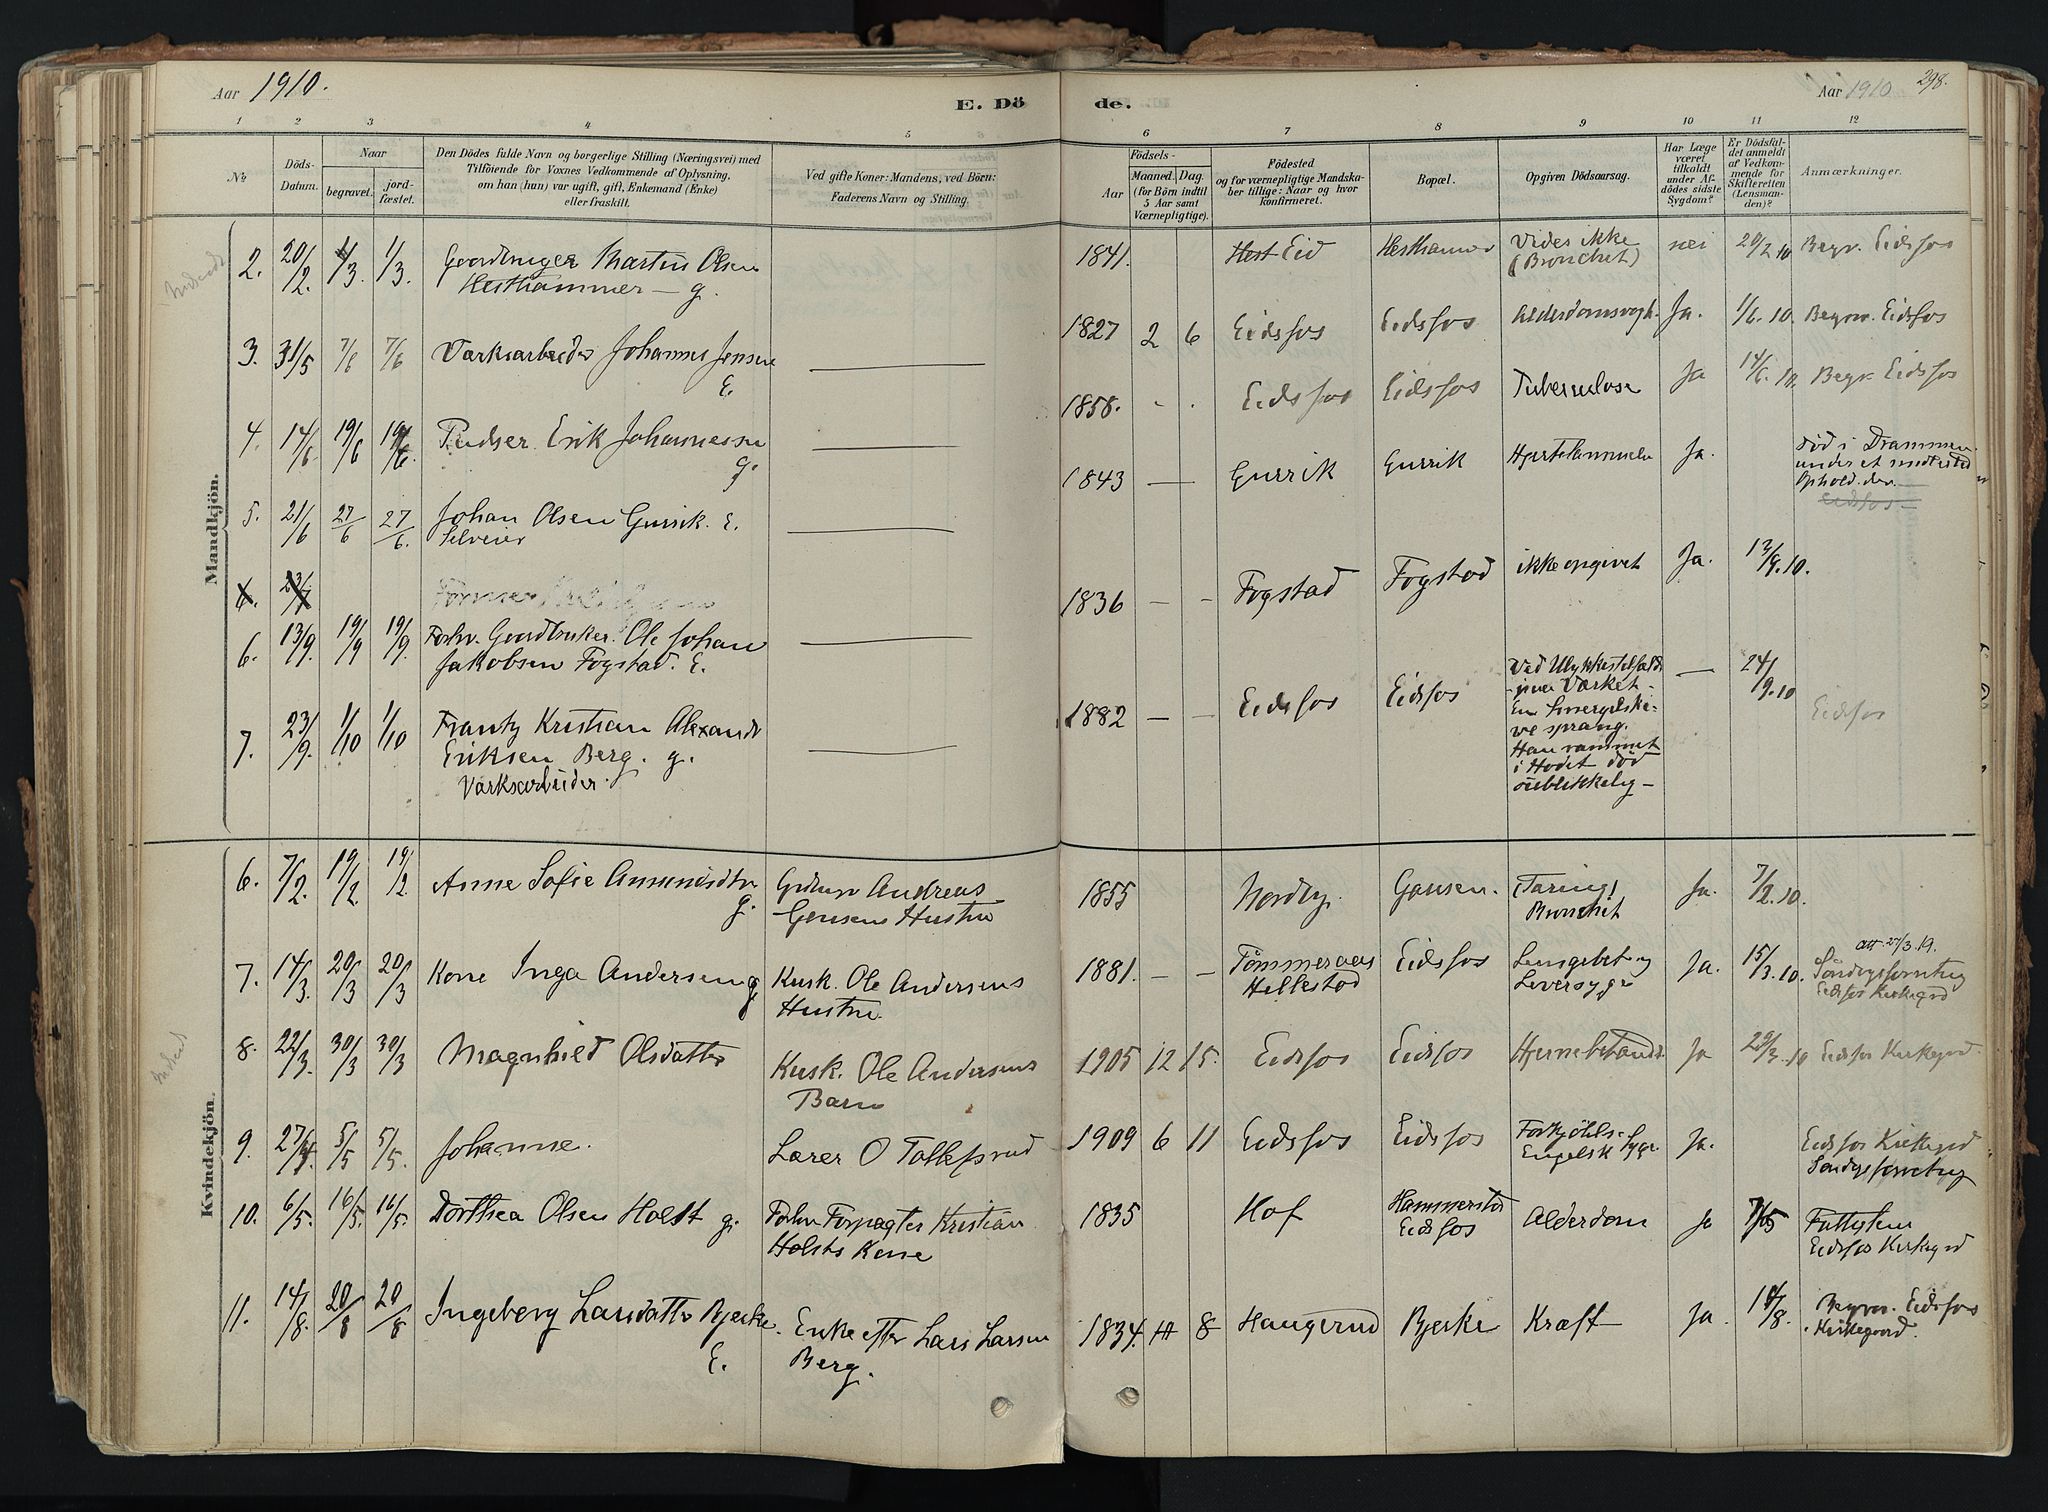 Aar 1910.
E. Dö
de.
Aar 1910
298.
1 2 3 4 5 6 7 8 9 10 11 12
No.
Döds-Datum.
Naar
begravet. jordfæstet.
Den Dödes fulde Navn og borgerlige Stilling (Næringsvei) med
Tilföiende for Voxnes Vedkommende af Oplysning,
om han (hun) var ugift, gift, Enkemand (Enke)
eller fraskilt.
Ved gifte Koner: Mandens, ved Börn:
Faderens Navn og Stilling.
Födsels-
Aar Maaned. Dag.
(for Börn indtil
5 Aar samt
Værnepligtige).
Födested
og for værnepligtige Mandska-
ber tillige: Naar og hvor
konfirmeret.
Bopæl.
Opgiven Dödsaarsag.
Har Læge
været
tilkaldt
under Af-
dödes sidste
Sygdom?
Er Dödsfal-
det anmeldt
af Vedkom-
mende for
Skifteretten
(Lensman-
den)?
Anmærkninger.
Mandkjön.
2. 20/2. 1/3. 1/3. Gaardbruger Martin Olsen
Hesthammer – g.
1841. Hest Eid Hesthammer Vides ikke
(Bronchit) nei 20/2 10 Begr. Eidsfos
3. 31/5 7/6 7/6 Værksarbeider Johannes Jensen
E.
1827 2 6 Eidsfos Eidsfos Alderdomssvagh. Ja. 1/6. 10. Begrav. Eidsfos
4. 14/6. 19/6 19/6. Pudser Erik Johannessen
g.
1858. Eidsfos Eidsfos Tuberculose Ja 14/6. 10. Begr. Eidsfos
5. 21/6 27/6 27/6. Johan Olsen Gurrik. E.
Selveier
1843 — Gurrik Gurrik Hjertelammelse Ja. Död i Drammen
under et midlertid
Ophold der. —
Eidsfos —
6. 23/7
6. 13/9. 19/9 19/9. Forhv. Gaardbruker. Ole Johan
Jakobsen Fogstad. E.
1836 — — Fogstad Fogstad ikke opgivet Ja. 13/9. 10.
7. 23/9. 1/10 1/10 Frantz Kristian Alexander
Eriksen Berg. g.
Værksarbeider.
1882 — — Eidsfos Eidsfos Ved Ulykkestilfælde
paa Værket –
En Smergelski-
ve sprang.
Han rammet
i Hodet död
öieblikkelig —
— 24/9. 10 Eidsfos
Kvindekjön.
6. 7/2. 19/2. 19/2 Anne Sofie Amundsdtr
g.
Gdbrgr Andreas
Gausens Hustru
1855 Nordby. Gausen. (Tæring)
Bronchit Ja. 7/2. 10.
7. 14/3. 20/3 20/3 Kone Inga Andersen g.
Kusk. Ole Andersens
Hustru.
1881. — — Tömmeraas
Hillestad Eidsfos Lungebet. og
Leversyge Ja. 15/3. 10. att. 27/3. 19.
Eidsfos Kirkegrd
8. 22/3. 30/3 30/3 Magnhild Olsdatter
Kusk. Ole Andersens
Barn
1905 12 15. Eidsfos Eidsfos Hjernebetænd. Ja 29/3. 10 Eidsfos Kirkegrd.
9. 27/4. 5/5 5/5. Johanne.
Lærer O Tollefsrud
1909 6 11 Eidsfos Eidsfos Forkjölels-
Engelsk Syge. Ja. Eidsfos Kirkegrd
10. 6/5. 16/5. 16/5. Dorthea Olsen Holst g.
Forhv Forpagter Kristian
Holsts Kone
1835 Hof Hammerstad
Eidsfos Alderdom Ja 7/5
Eidsfos Kirkegrd
11. 14/8. 20/8 20/8 Ingeborg Larsdatter Bjerke.
E.
Enke efter Lars Larsen
Berg.
1834. 8 Haugerud Bjerke Kræft Ja. 18/8. Begrav. Eidsfos
Kirkegaard.